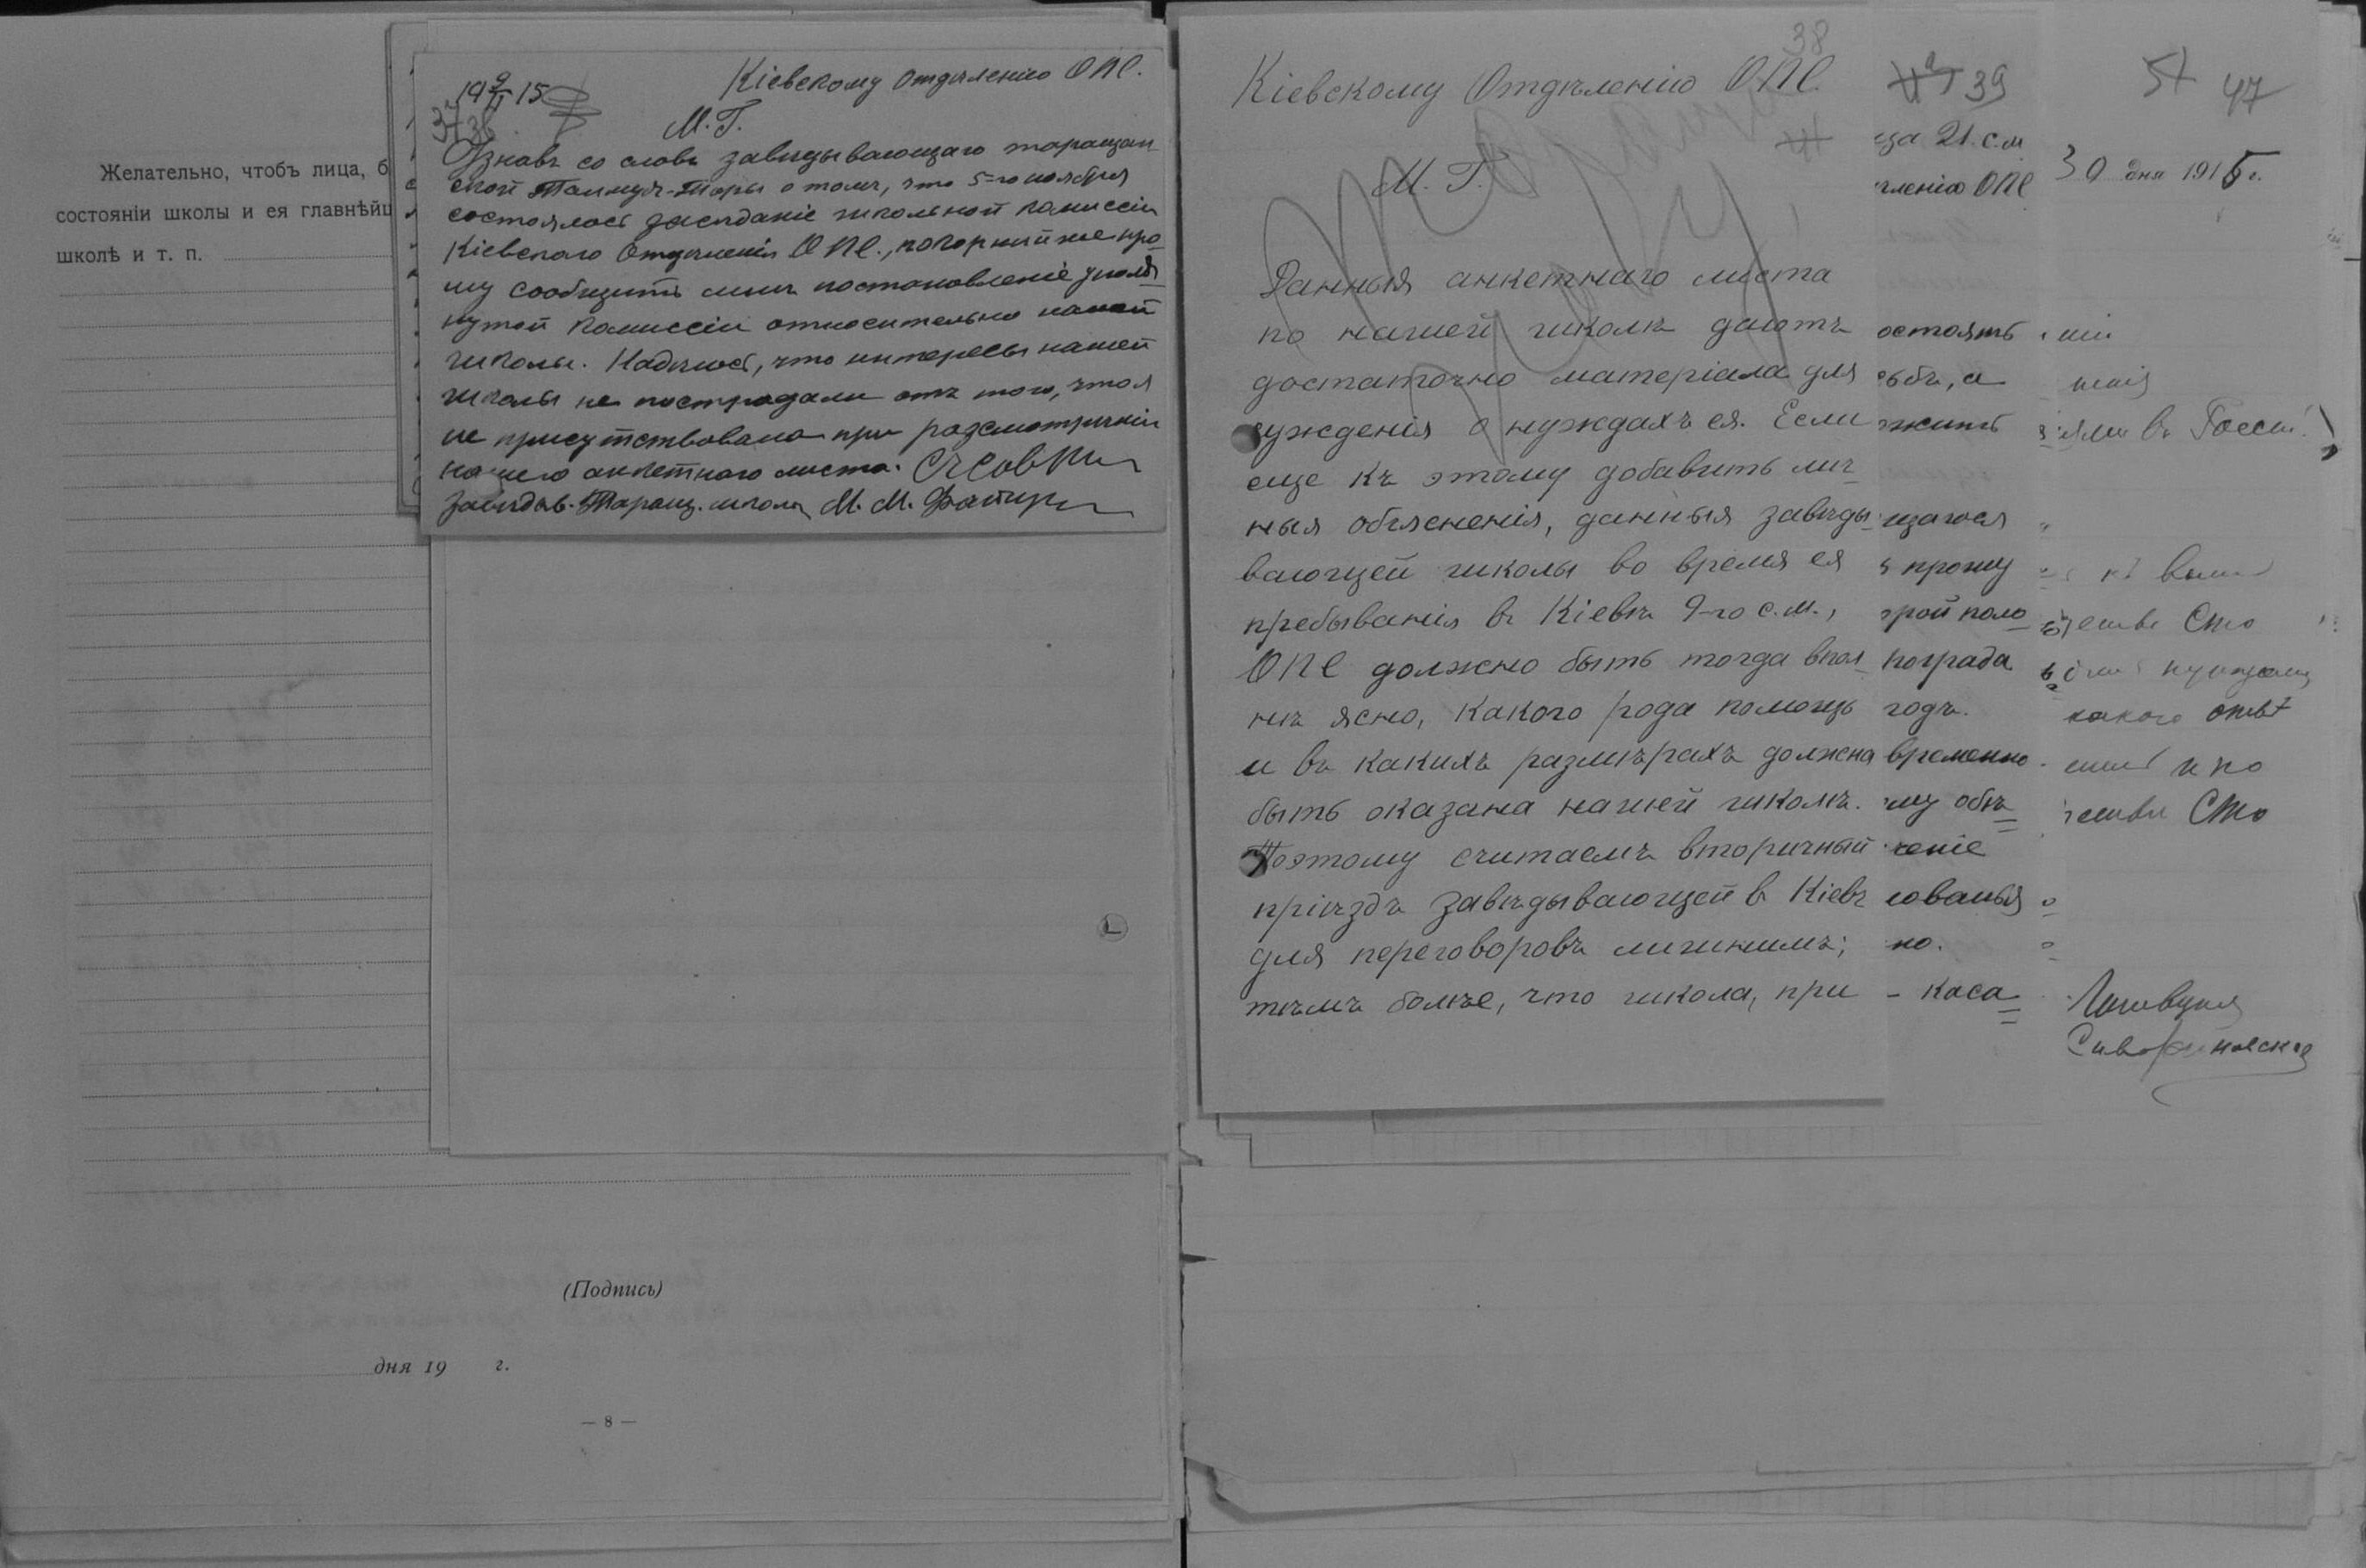 Желательно, чтобъ лица, б
состояніи школы и ея главнѣйш
школѣ и т. п.
19 9/XI 15
37
38
Кіевскому Отдѣленію ОПЕ.
М. Г.
Узнавъ со словъ завѣдывающаго таращан-
ской Талмудъ-Торы о томъ, что 5-го ноября
состоялось засѣданіе школьной комиссіи
Кіевскаго Отдѣленія ОПЕ., покорнѣйше про-
шу сообщить мнѣ постановленіе упомя-
нутой комиссіи относительно нашей
школы. Надѣюсь, что интересы нашей
школы не пострадали отъ того, что я
не присутствовала при разсмотрѣніи
нашего анкетнаго листа.
Завѣдыв. Таращ. школы М. М.
(Подпись)
дня 19 г.
— 8 —
38
Кіевскому Отдѣленію ОПЕ.
М. Г.
Данныя анкетнаго листа
по нашей школѣ даютъ
достаточно матеріала для
сужденія о нуждахъ ея. Если
еще къ этому добавить лич-
ныя объясненія, данныя завѣды-
вающей школы во время ея
пребыванія въ Кіевѣ 9-го с.м.,
ОПЕ должно быть тогда впол-
нѣ ясно, какого рода помощь
и въ какихъ размѣрахъ должна
быть оказана нашей школѣ.
Поэтому считаемъ вторичный
пріѣздъ завѣдывающей въ Кіевъ
для переговоровъ лишнимъ;
тѣмъ болѣе, что школа, при
39
ца 21 с.м
ленію ОПЕ
остоять
ъбъ, а
жить
щагося
я прошу
рой поло
нограда
годъ.
временно
му объ
ченіе
ованья
но.
- каса
57 47
30 дня 1915 г.
нія
ями въ Россіи.
къ
Сто
какого отвѣт
и по
Сто